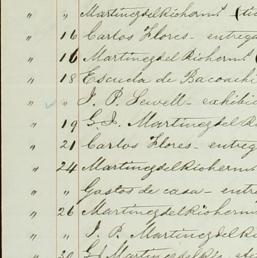 " " Martinez del Rio hermt (
" 16 Carlos Flores - entrega
" 16 Martinez del Rio hermt (
" 18 Escuela de Bacoachi
" " J. P. Sewell - exhibi
" 19 G. J. Martinez del R
" 21 Carlos Flores - entreg
" 24 Martinez del Rio hermt
" " Gastos de casa - entr
" 26 Martinez del Rio herm
" " J. P. Martinez del R
" Martinez del